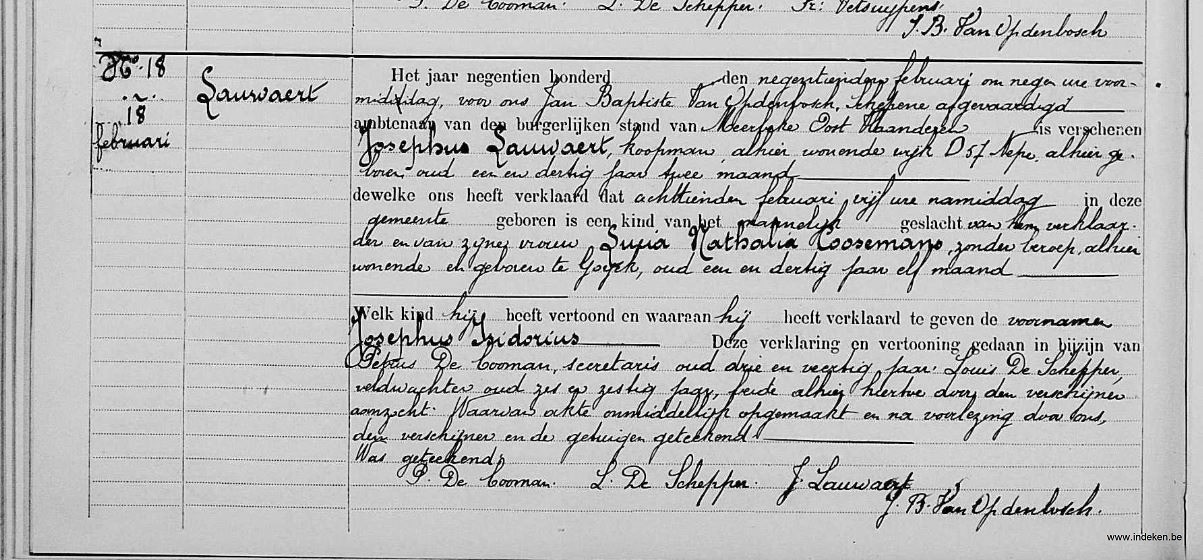 P. De Cooman. L. De Schepper. Fr. Vetsuypens.
J. B. Van Opdenbosch
No. 18
18
februari
Lauwaert
Het jaar negentien honderd den negentienden februari om negen ure voor-
middag, voor ons Jan Baptiste Van Opdenbosch, Schepene afgevaardigd
ambtenaar van den burgerlijken stand van Meerbeke Oost Vlaanderen is verschenen
Josephus Lauwaert, koopman, alhier wonende wijk D 57 Nepe, alhier ge-
boren, oud een en dertig jaar twee maand
dewelke ons heeft verklaard dat achttienden februari vijf ure namiddag in deze
gemeente geboren is een kind van het mannelijk geslacht van hem verklaar-
der en van zijne vrouw Livia Nathalia Coosemans, zonder beroep, alhier
wonende en geboren te Goyck, oud een en dertig jaar elf maand
Welk kind hij heeft vertoond en waaraan hij heeft verklaard te geven de voornamen
Josephus Isidorius Deze verklaring en vertooning gedaan in bijzijn van
Petrus De Cooman, secretaris oud drie en veertig jaar: Louis De Schepper,
veldwachter oud zes en zestig jaar, beide alhier hiertoe door den verschijner
aanzocht. Waarvan akte onmiddelijk opgemaakt en na voorlezing door ons,
den verschijner en de getuigen geteekend
Was geteekend,
P. De Cooman. L. De Schepper. J. Lauwaert
J. B. Van Opdenbosch.
www.indeken.be